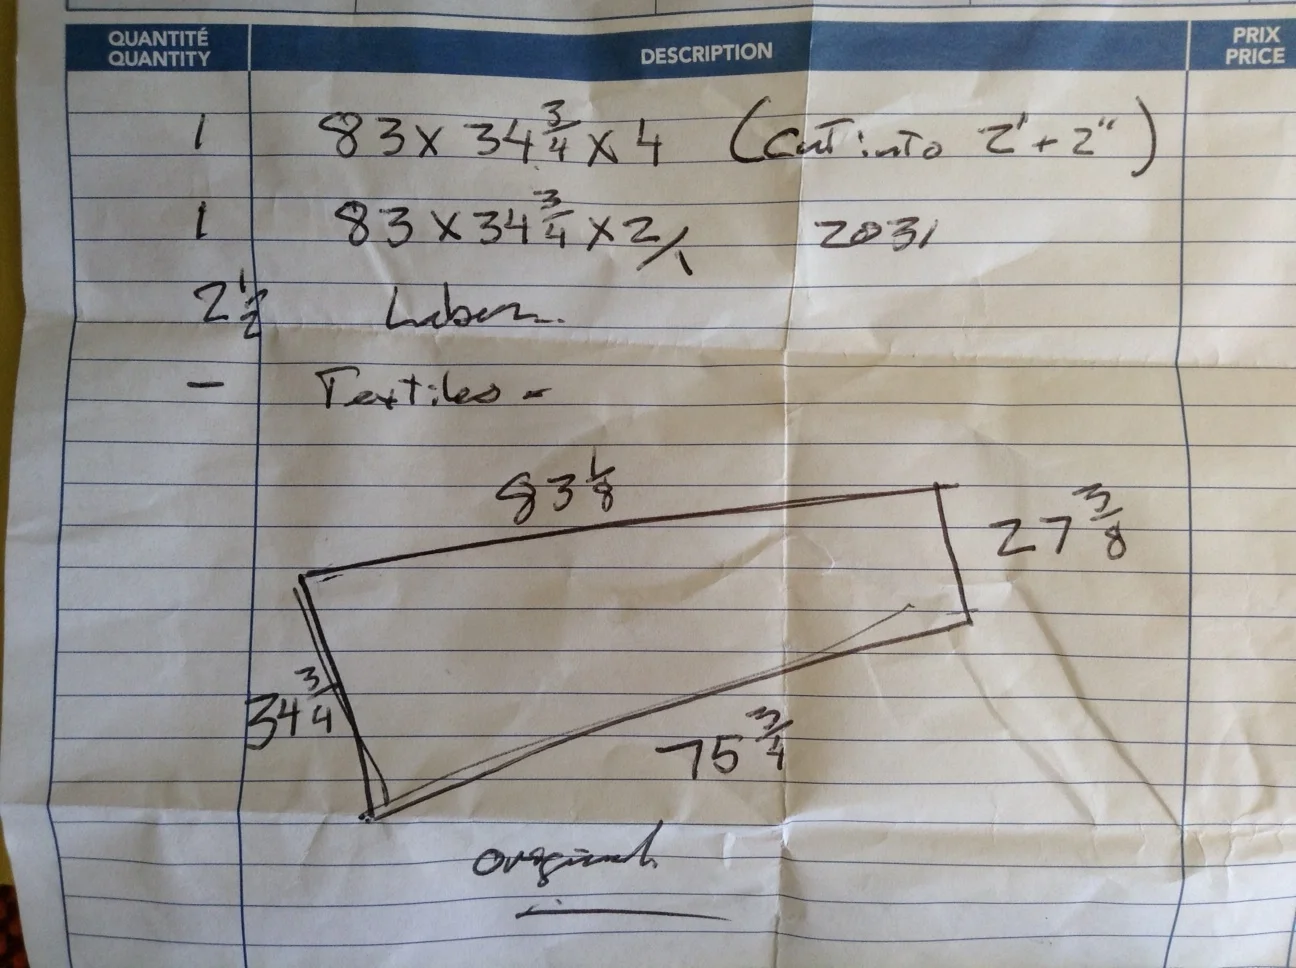 QUANTITÉ QUANTITY DESCRIPTION PRIX PRICE
1 83 x 34 3/4 x 4 (cut into 2' + 2")
1 83 x 34 3/4 x 2/1 2031
2 1/2 Labor
- Textiles -
83 1/8
27 3/8
34 3/4
75 3/4
original